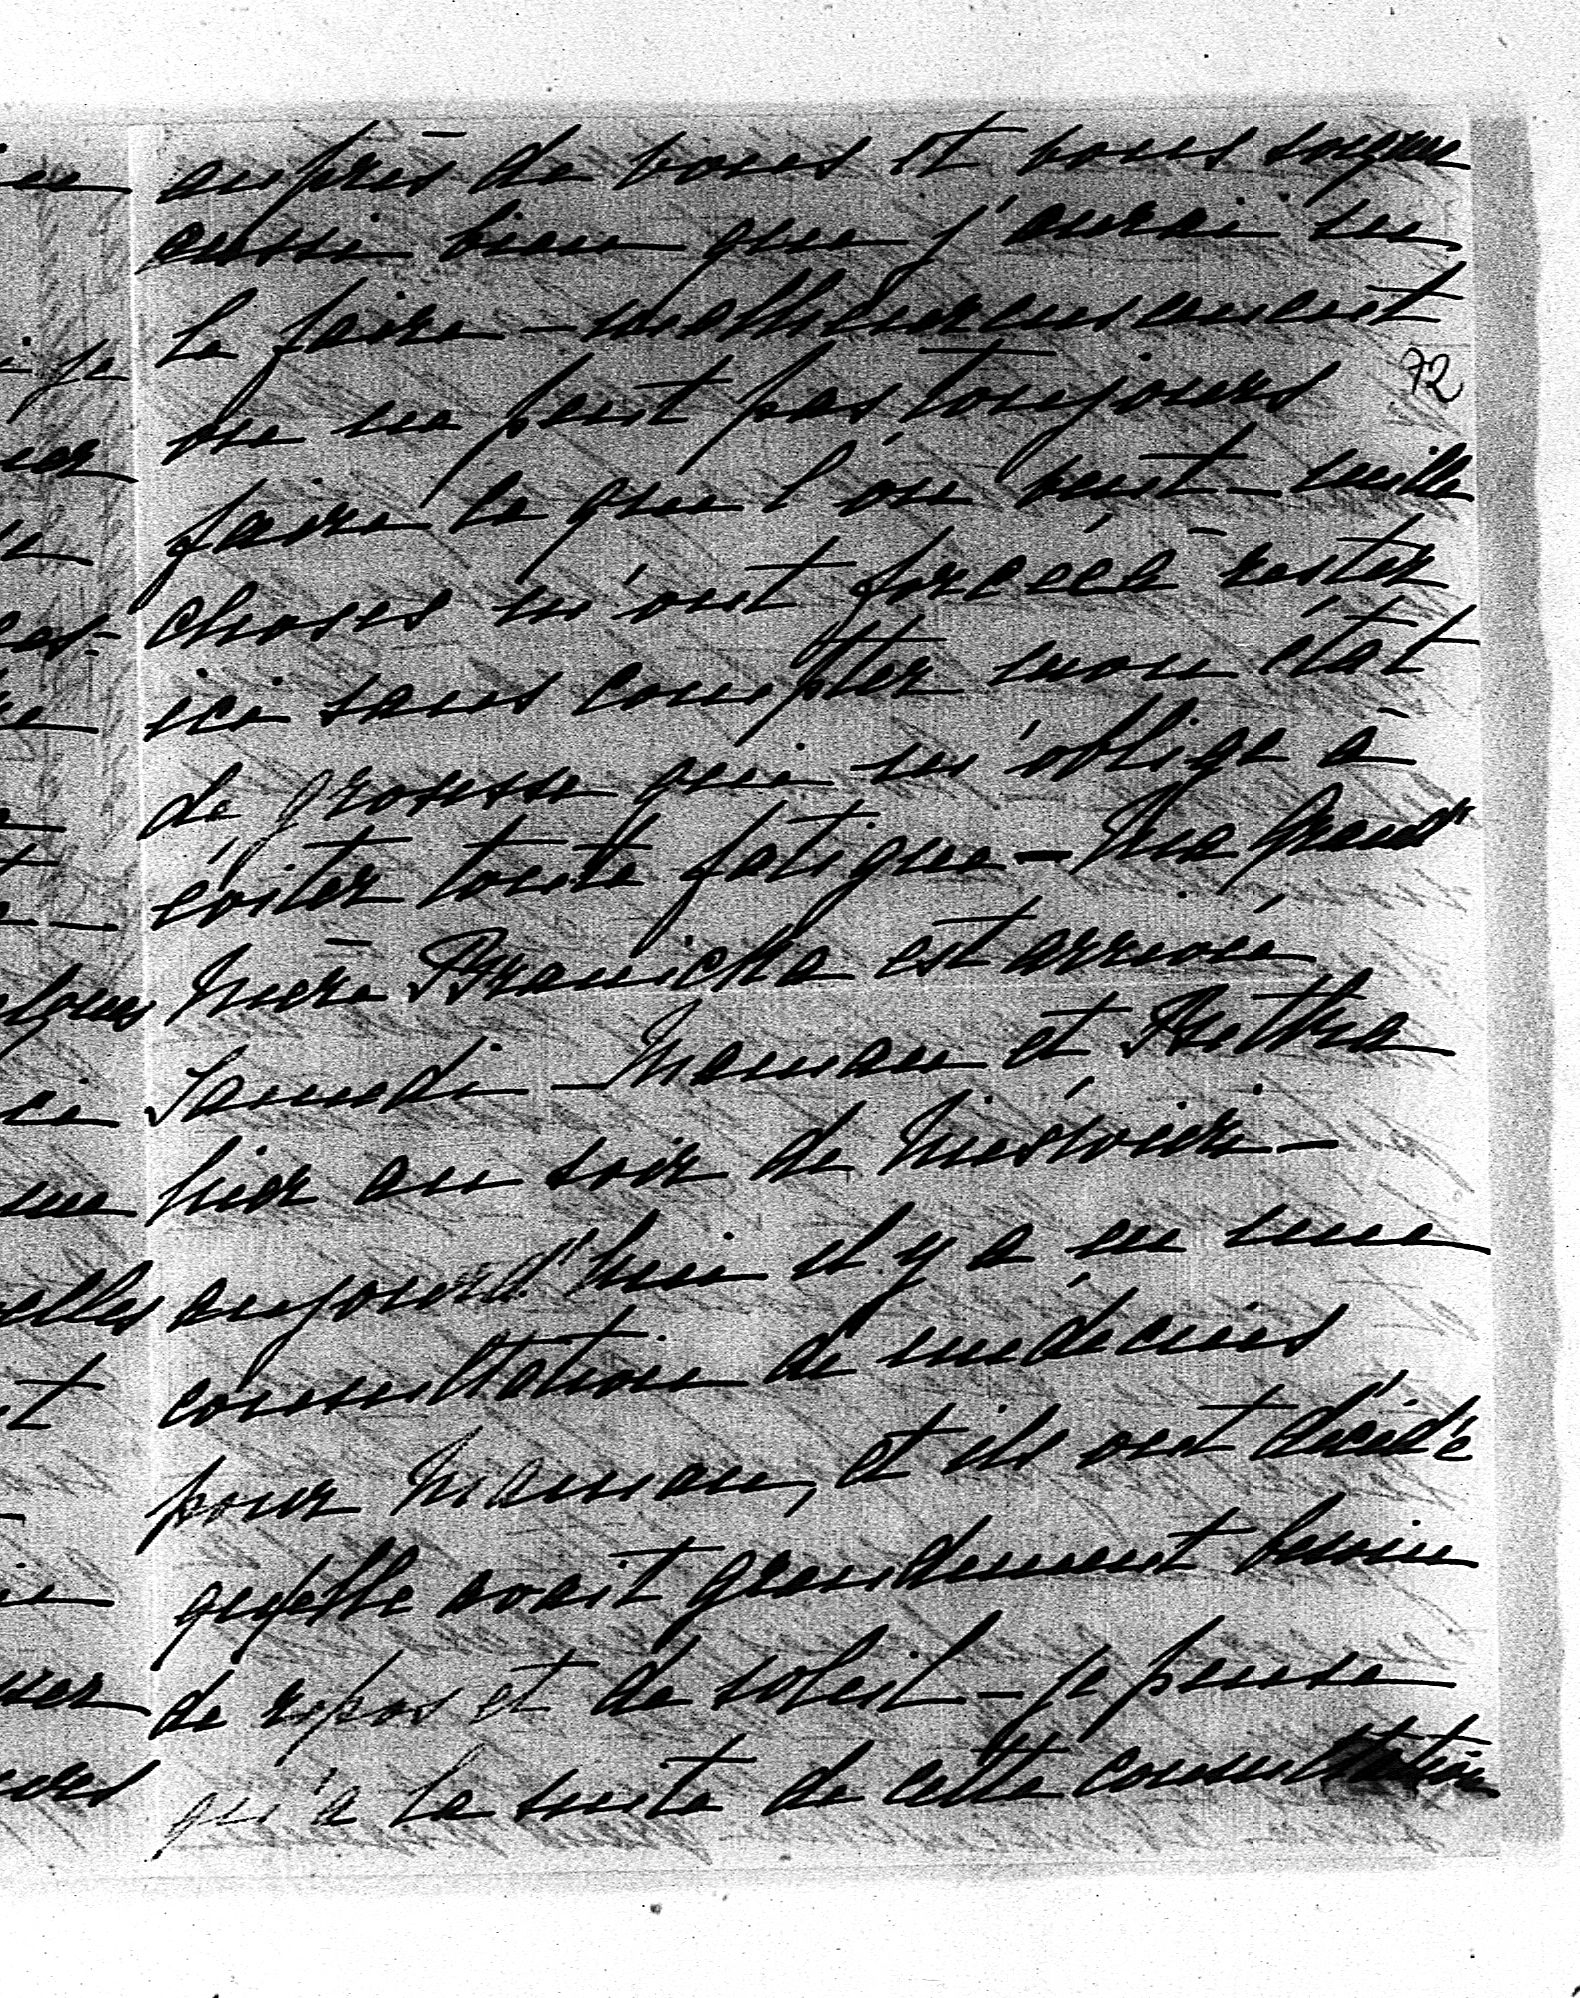 auprès de vous et vous soigner
aussi bien que j'aurai su
le faire — malheureusement
on ne peut pas toujours
72
faire ce que l'on veut — mille
choses m'ont forcée à rester
ici sans compter mon état
de grosesse qui m'oblige à
éviter toute fatigue — Ma Grand'
Mère Branicka est arrivée
Samedi — Maman et Bietka
hier au soir de Nieśwież —
aujourd'hui il y a eu une
consultation de médecins
pour Maman, et ils ont décidé
qu'elle avait grandement besoin
de repos et de soleil — je pense
qu'à la suite de cette consultation